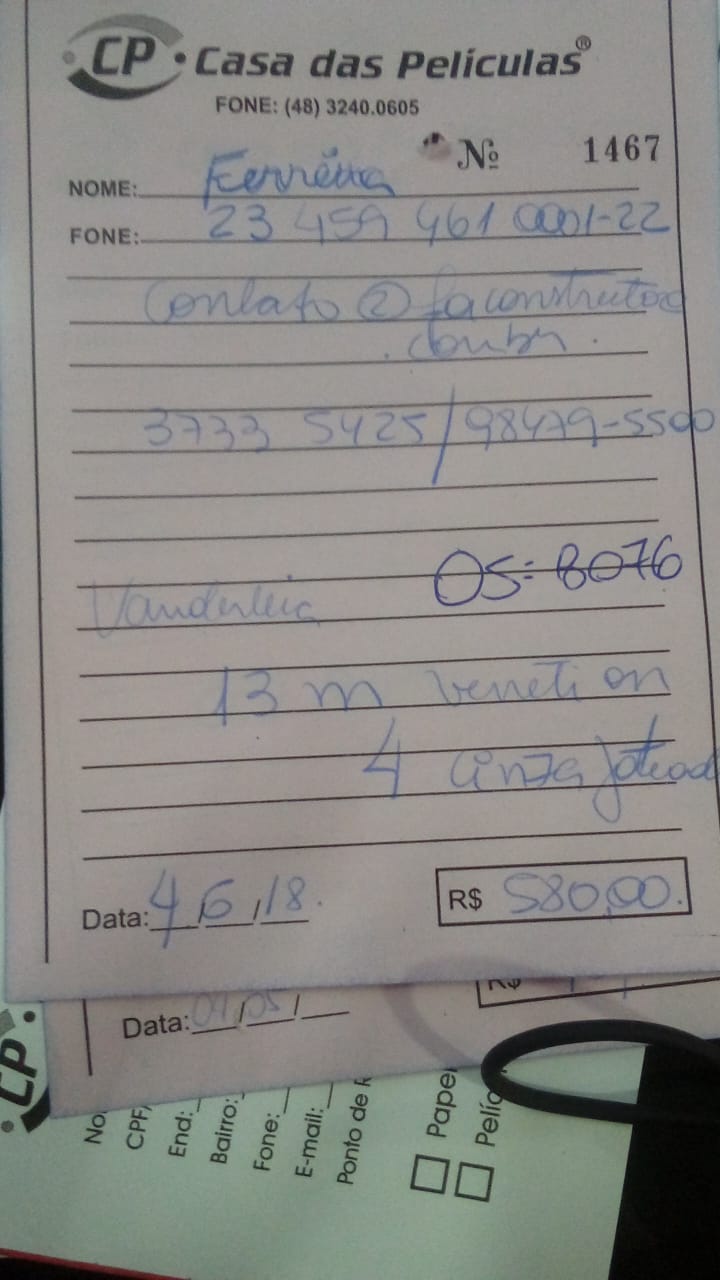 CP • Casa das Películas®
FONE: (48) 3240.0605
Nº 1467
NOME: Ferreira
FONE: 23 459 461 0001-22
Contato @ faconstrutora
.com.br.
3733 5425 / 98479-5500
OS: 8076
Vanderleia
13 m veneti on
4 cinza jatead
Data: 4/6/18. R$ 580,00.
R$
Data: 04/05/
CP
No
CPF/
End:
Bairro:
Fone:
E-mail:
Ponto de R
Pape
Pelíc